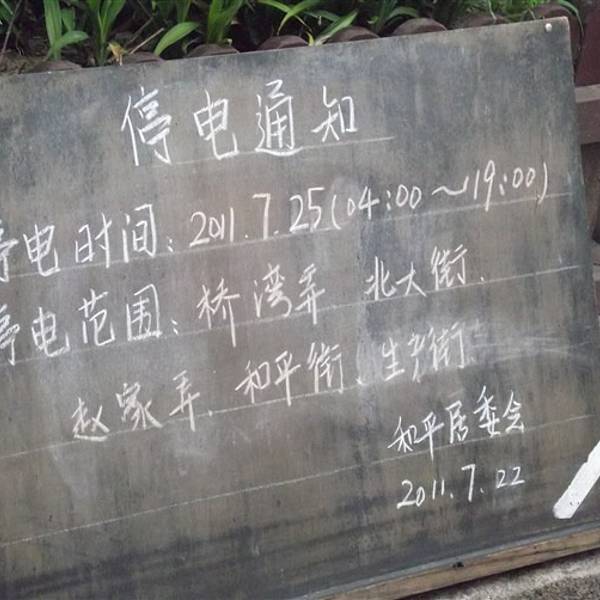 停电通知
停电时间：2011.7.25(04:00～19:00)
停电范围：桥湾弄 北大街、
赵家弄、和平街、生产街
和平居委会
2011.7.22